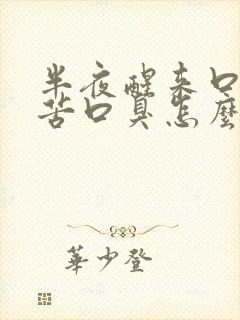 半夜醒来口
苦口臭怎麼
華少登